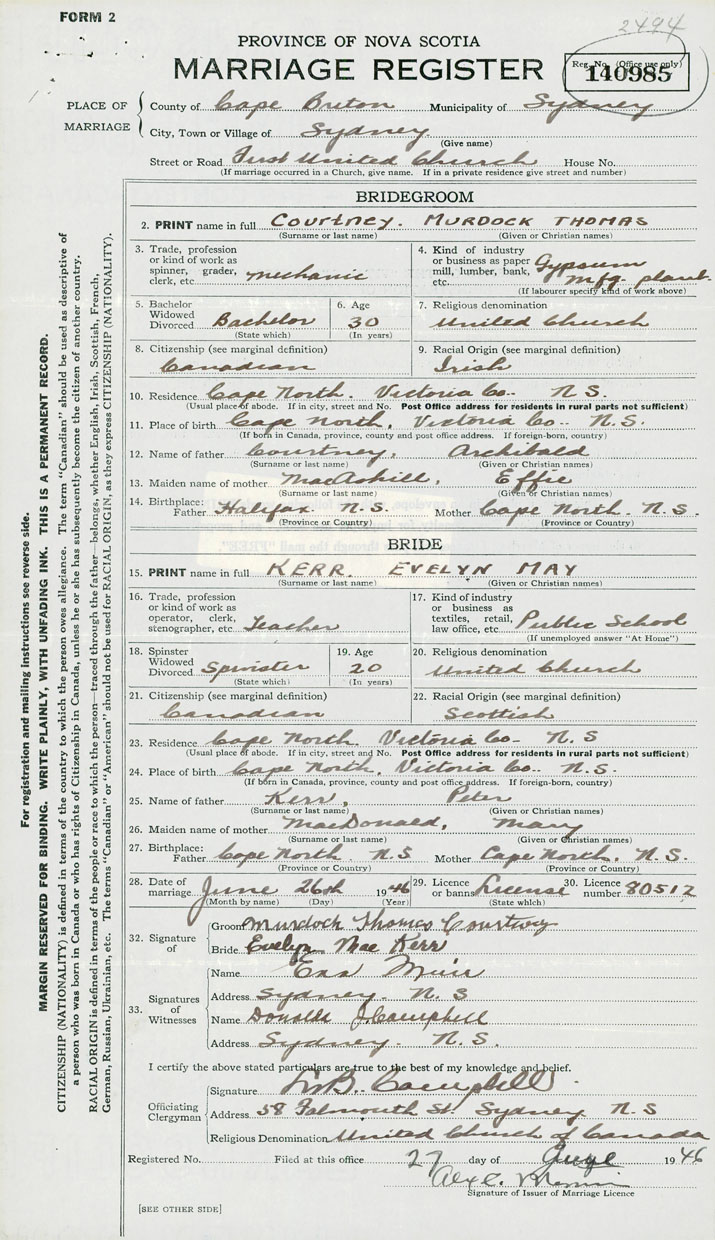 FORM 2
2494
PROVINCE OF NOVA SCOTIA
MARRIAGE REGISTER
Reg. No. (Office use only)
140985
PLACE OF MARRIAGE
County of Cape Breton Municipality of Sydney
City, Town or Village of Sydney
(Give name)
Street or Road First United Church House No.
(If marriage occurred in a Church, give name. If in a private residence give street and number)
BRIDEGROOM
2. PRINT name in full COURTNEY. MURDOCK THOMAS
(Surname or last name) (Given or Christian names)
3. Trade, profession or kind of work as spinner, grader, clerk, etc. Mechanic
4. Kind of industry or business as paper mill, lumber, bank, etc. Gypsum mfg. plant
(If labourer specify kind of work above)
5. Bachelor Widowed Divorced Bachelor
(State which)
6. Age 30
(In years)
7. Religious denomination
United Church
8. Citizenship (see marginal definition)
Canadian
9. Racial Origin (see marginal definition)
Irish
10. Residence Cape North. Victoria Co. N S.
(Usual place of abode. If in city, street and No. Post Office address for residents in rural parts not sufficient)
11. Place of birth Cape North, Victoria Co. N.S.
(If born in Canada, province, county and post office address. If foreign-born, country)
12. Name of father Courtney, Archibald
(Surname or last name) (Given or Christian names)
13. Maiden name of mother MacAskill, Effie
(Surname or last name) (Given or Christian names)
14. Birthplace: Father Halifax N.S. Mother Cape North. N.S.
(Province or Country) (Province or Country)
BRIDE
15. PRINT name in full KERR. EVELYN MAY
(Surname or last name) (Given or Christian names)
16. Trade, profession or kind of work as operator, clerk, stenographer, etc. Teacher
17. Kind of industry or business as textiles, retail, law office, etc. Public School
(If unemployed answer "At Home")
18. Spinster Widowed Divorced Spinster
(State which)
19. Age 20
(In years)
20. Religious denomination
United Church
21. Citizenship (see marginal definition)
Canadian
22. Racial Origin (see marginal definition)
Scottish
23. Residence Cape North Victoria Co. N. S
(Usual place of abode. If in city, street and No. Post Office address for residents in rural parts not sufficient)
24. Place of birth Cape North, Victoria Co. N.S.
(If born in Canada, province, county and post office address. If foreign-born, country)
25. Name of father Kerr, Peter
(Surname or last name) (Given or Christian names)
26. Maiden name of mother MacDonald, Mary
(Surname or last name) (Given or Christian names)
27. Birthplace: Father Cape North. N.S Mother Cape North. N.S.
(Province or Country) (Province or Country)
28. Date of marriage June 26th 1946
(Month by name) (Day) (Year)
29. Licence or banns License
(State which)
30. Licence number 80512
32. Signature of
Groom Murdoch Thomas Courtney
Bride Evelyn Mae Kerr
33. Signatures of Witnesses
Name Muir
Address Sydney. N. S
Name Donald J. Campbell
Address Sydney. N.S.
I certify the above stated particulars are true to the best of my knowledge and belief.
Officiating Clergyman
Signature Campbell
Address 58 Falmouth St. Sydney N.S
Religious Denomination United Church of Canada
Registered No. Filed at this office 27 day of 1946
Signature of Issuer of Marriage Licence
[SEE OTHER SIDE]
For registration and mailing instructions see reverse side.
MARGIN RESERVED FOR BINDING. WRITE PLAINLY, WITH UNFADING INK. THIS IS A PERMANENT RECORD.
CITIZENSHIP (NATIONALITY) is defined in terms of the country to which the person owes allegiance. The term "Canadian" should be used as descriptive of
a person who was born in Canada or who has rights of Citizenship in Canada, unless he or she has subsequently become the citizen of another country.
RACIAL ORIGIN is defined in terms of the people or race to which the person—traced through the father—belongs, whether English, Irish, Scottish, French,
German, Russian, Ukrainian, etc. The terms "Canadian" or "American" should not be used for RACIAL ORIGIN, as they express CITIZENSHIP (NATIONALITY).